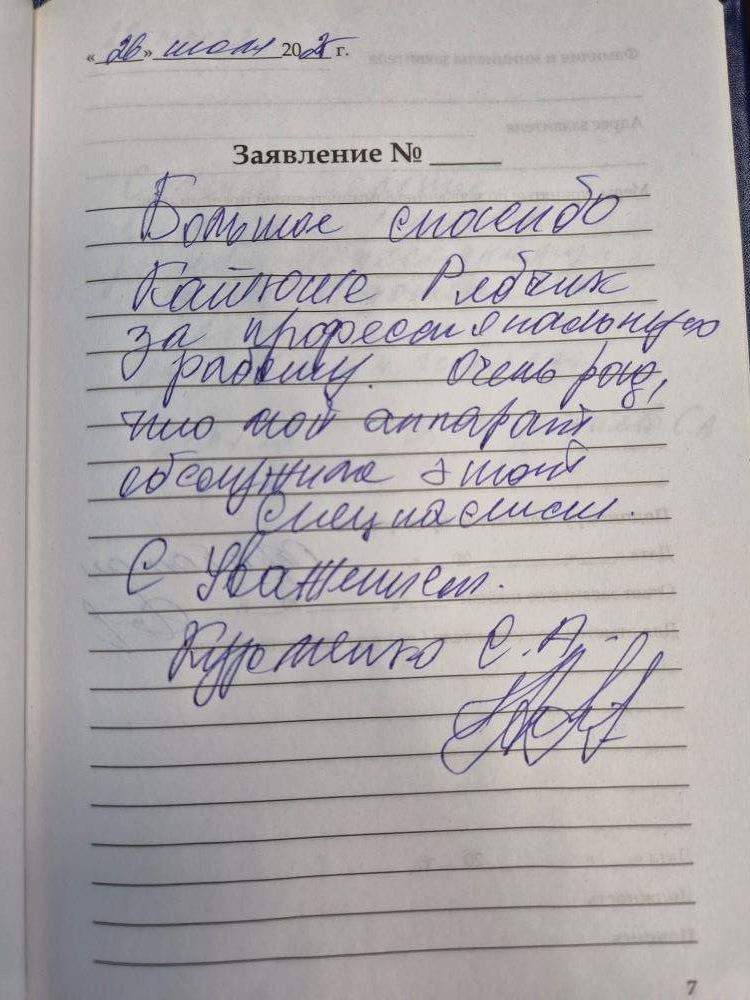 « 26 » июля 2025 г.
Заявление № ____
Большое спасибо
Катюше Рябчик
за профессиянальную
работу. Очень рад,
что мой аппарат
обслужила этот
специалист.
С Уважением.
Курженко С. А.
7